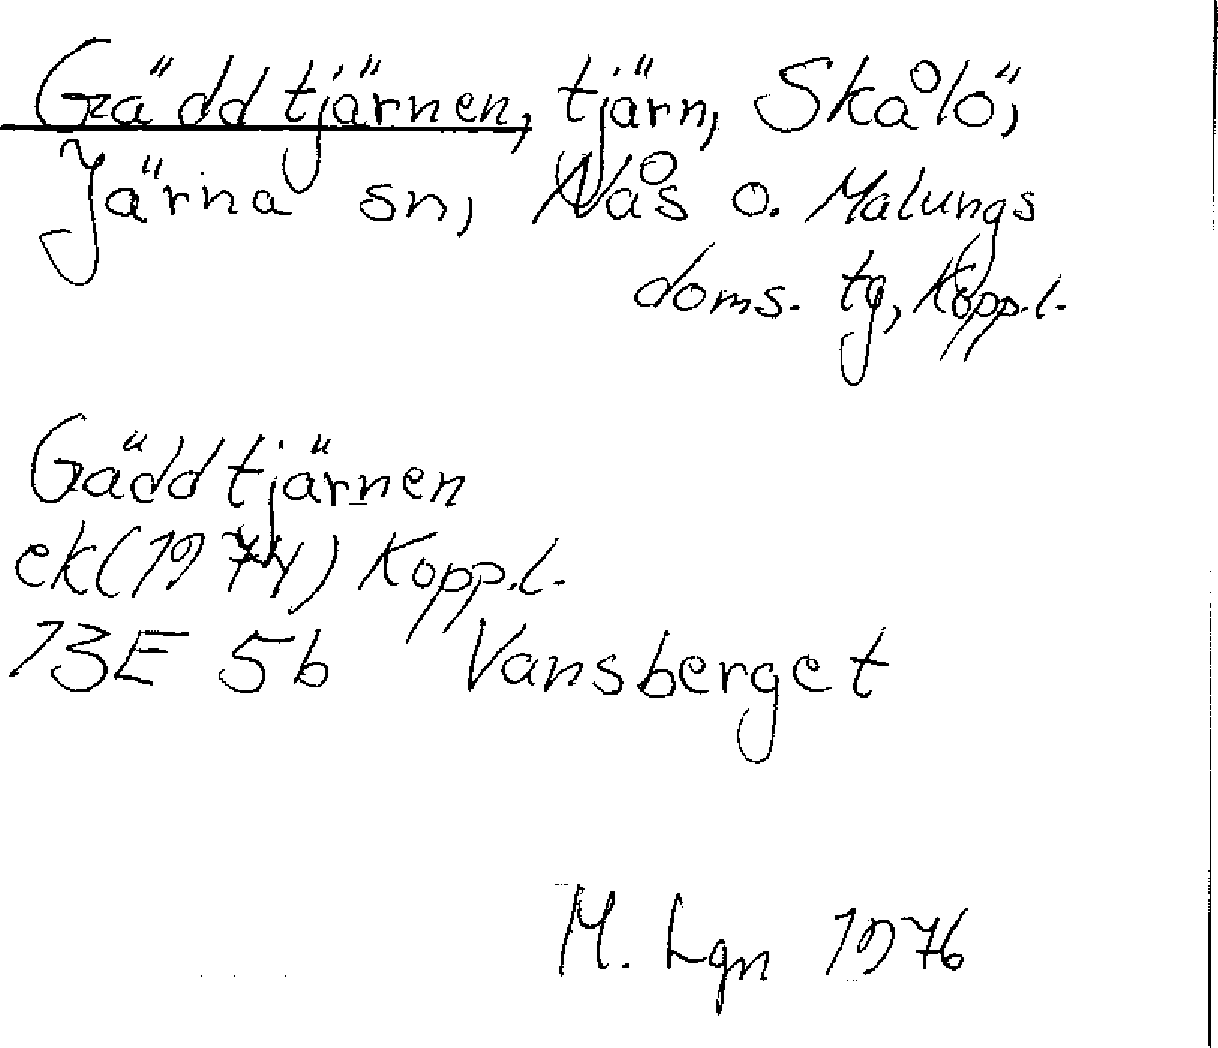 Gäddtjärnen, tjärn, Skålö,
Järna sn, Nås o. Malungs
doms. tg, Kopp.l.
Gäddtjärnen
ek(1974) Kopp.l.
13E 5b Vansberget
M. Lgn 1976